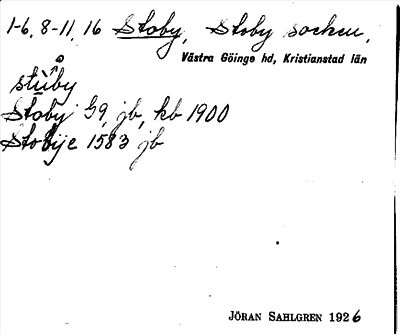 1-6, 8-11, 16 Stoby, Stoby socken,
Västra Göinge hd, Kristianstad län
Stoby G9, jb, kb 1900
Stobije 1583 jb
JÖRAN SAHLGREN 1926